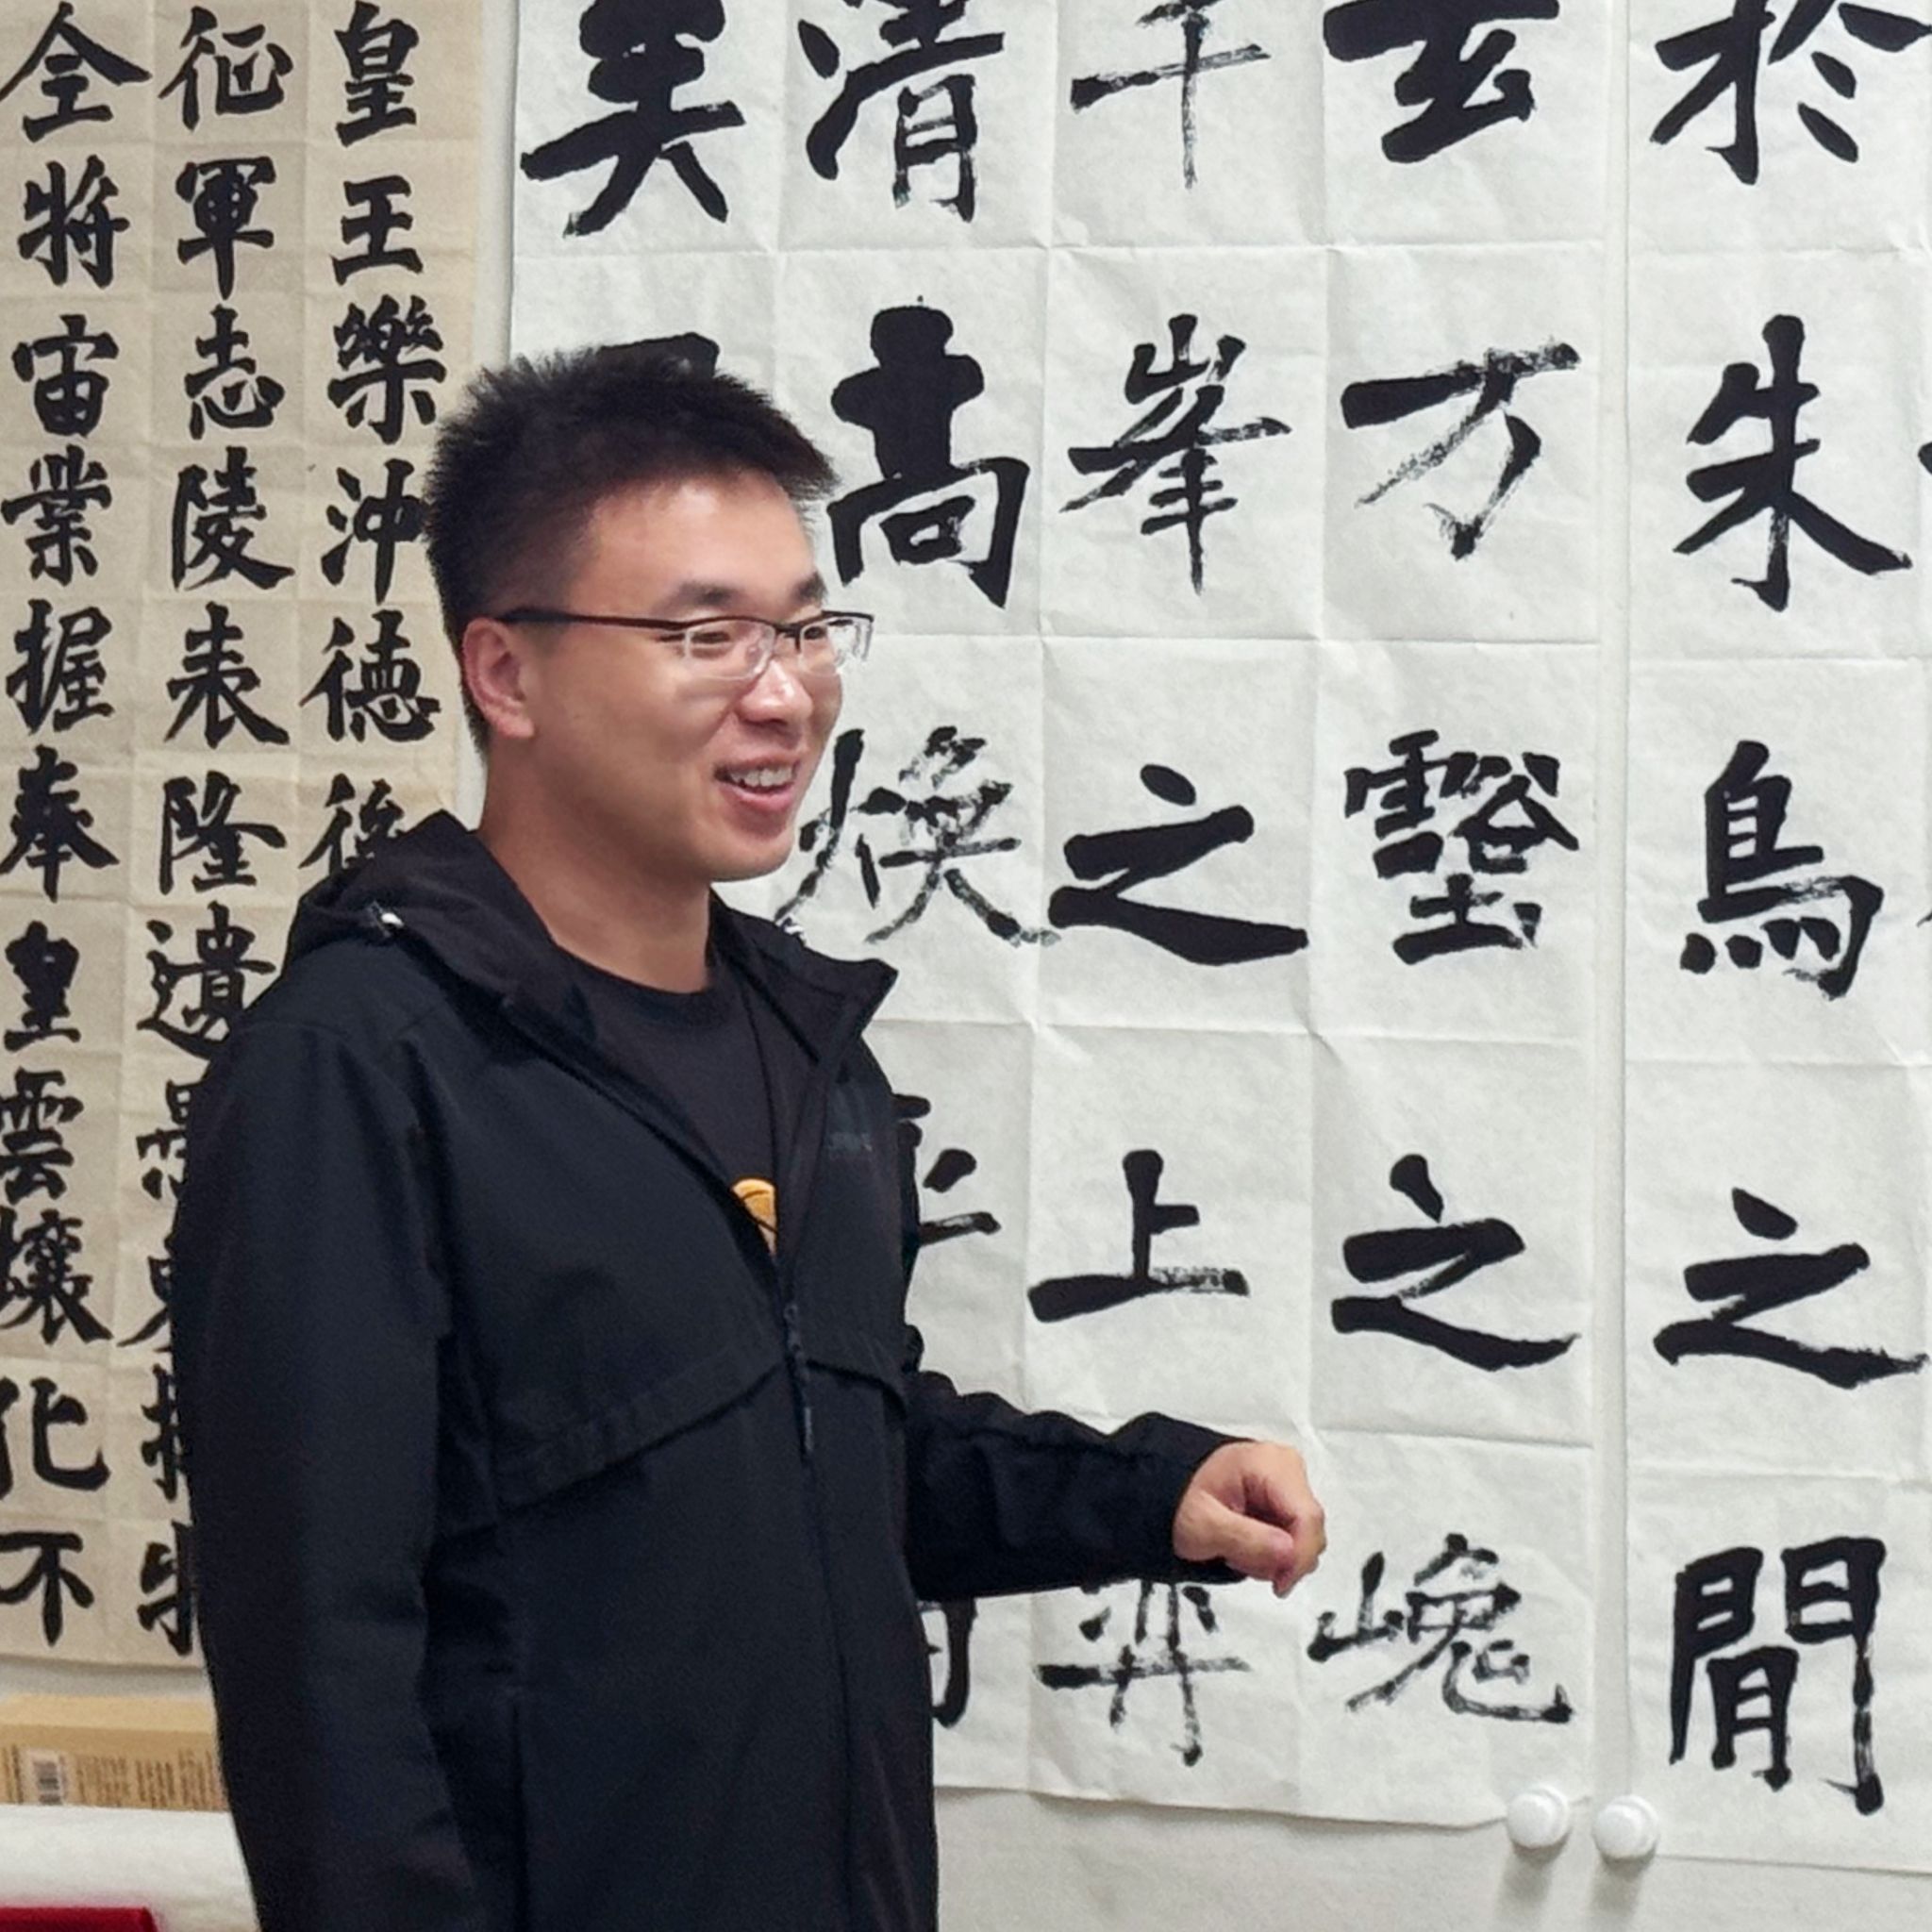 於朱鳥之閒
玄万壑之
千峯之上
清高煥乎
美
皇王樂沖德後
征軍志陵表隆遺
全將宙業握奉皇雲壤化不